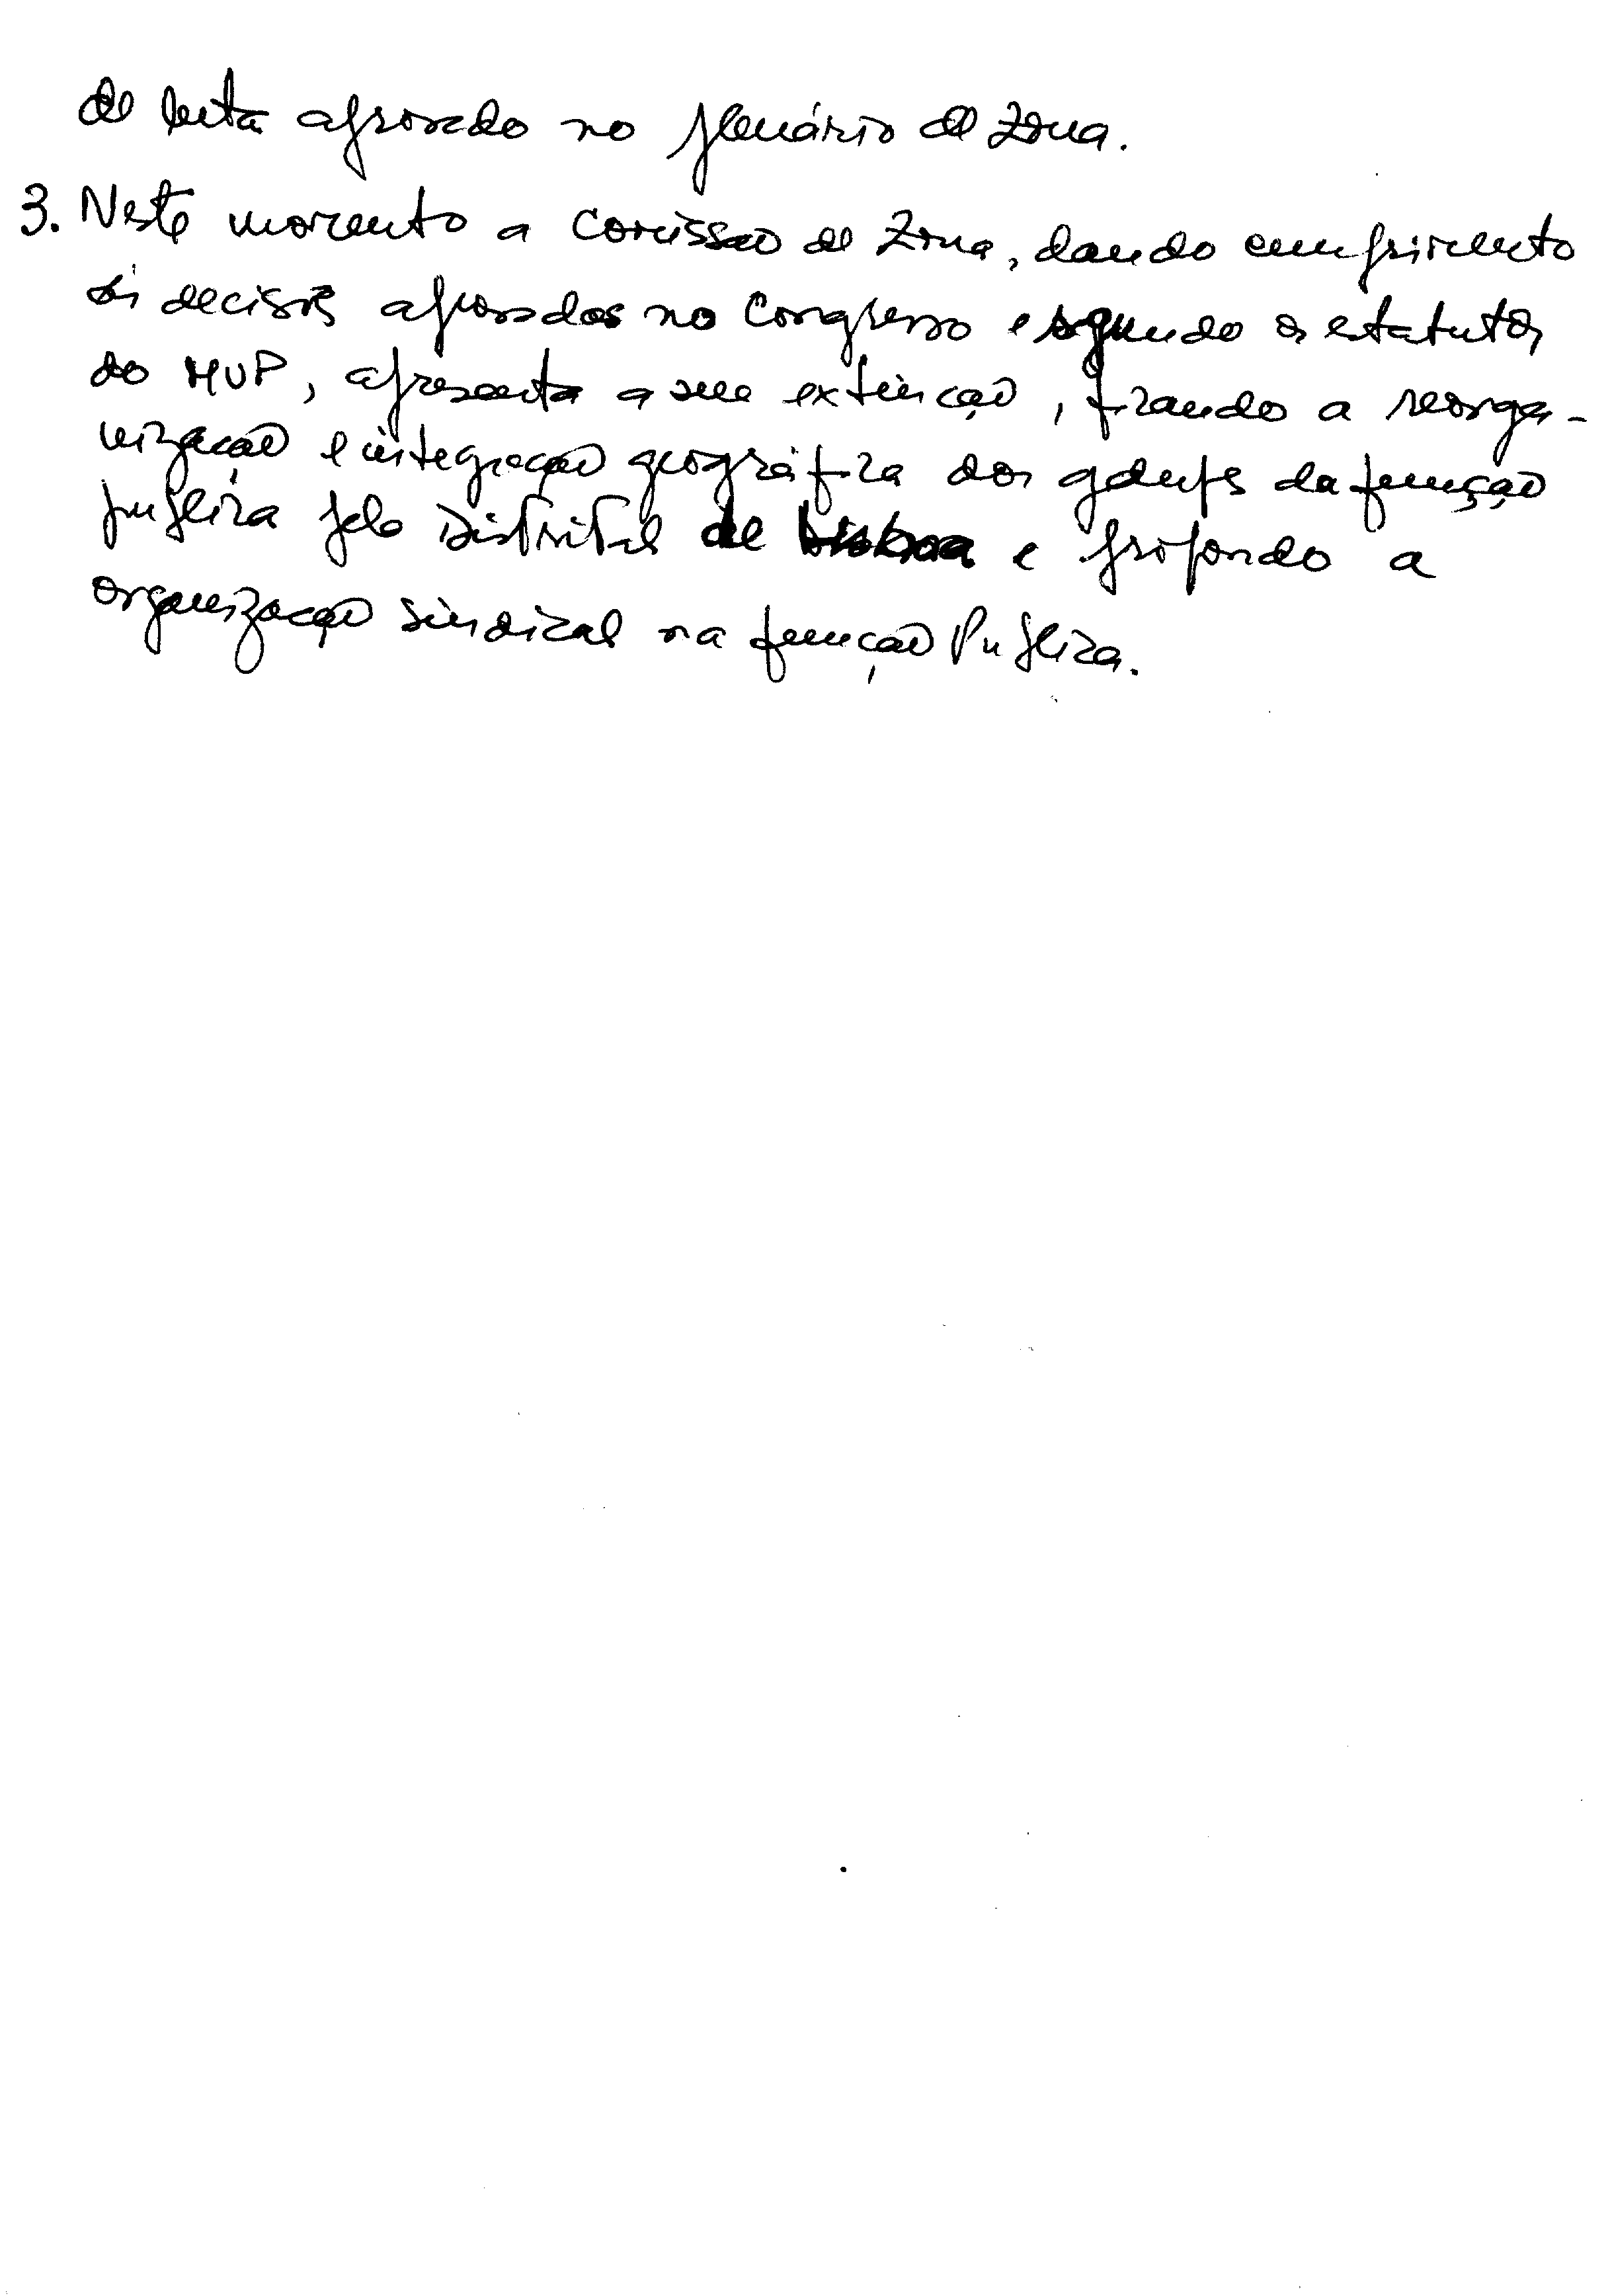 de luta aprovado no plenário de zona.
3. Neste momento a Comissão de Zona, dando cumprimento
às decisões aprovadas no Congresso e segundo os estatutos
do MUP, apresenta a sua extinção, ficando a reorga-
nização e integração geográfica dos gdups da função
publica pelo Distrital de Lisboa e propondo a
organização sindical na função Publica.